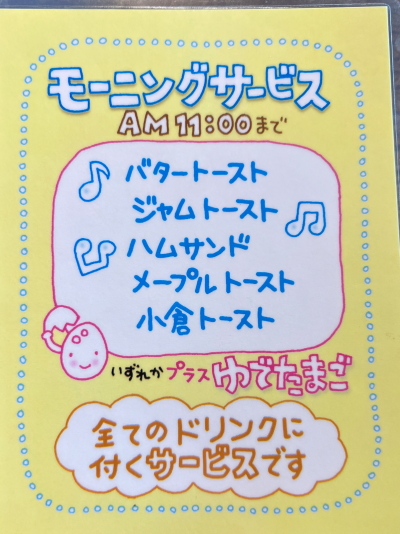 モーニングサービス
AM 11:00まで
バタートースト
ジャムトースト
ハムサンド
メープルトースト
小倉トースト
いずれか プラス ゆでたまご
全てのドリンクに
付くサービスです